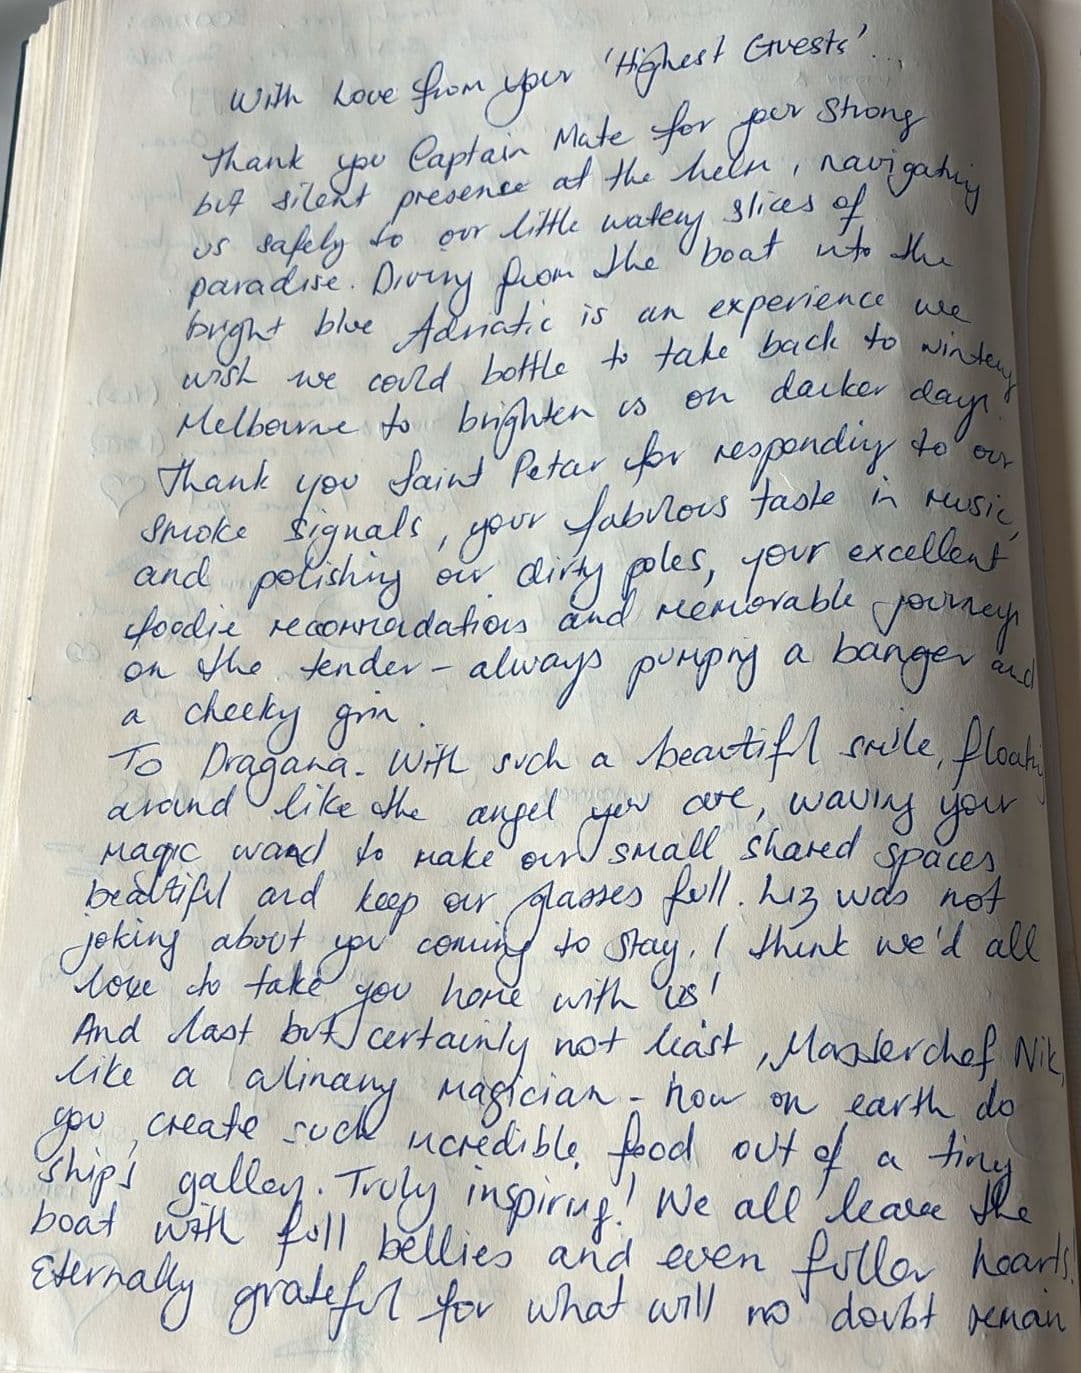 With Love from your 'Highest Guests'...
Thank you Captain Mate for your strong
but silent presence at the helm, navigating
us safely to our little watery slices of
paradise. Diving from the boat into the
bright blue Adriatic is an experience we
wish we could bottle to take back to wintery
Melbourne to brighten us on darker days.
Thank you Saint Petar for responding to our
smoke signals, your fabulous taste in music,
and polishing our dirty poles, your excellent
foodie recommadations and memorable journeys
on the tender - always pumping a banger and
a cheeky grin.
To Dragana. With such a beautiful smile, floating
around like the angel you are, waving your
magic wand to make our small shared spaces
beautiful and keep our glasses full. Liz was not
joking about you coming to stay. I think we'd all
love to take you home with us!
And last but certainly not least, Masterchef Nik,
like a culinary magician - how on earth do
you create such incredible food out of a tiny
ship's galley. Truly inspiring! We all leave the
boat with full bellies and even fuller hearts.
Eternally grateful for what will no doubt remain